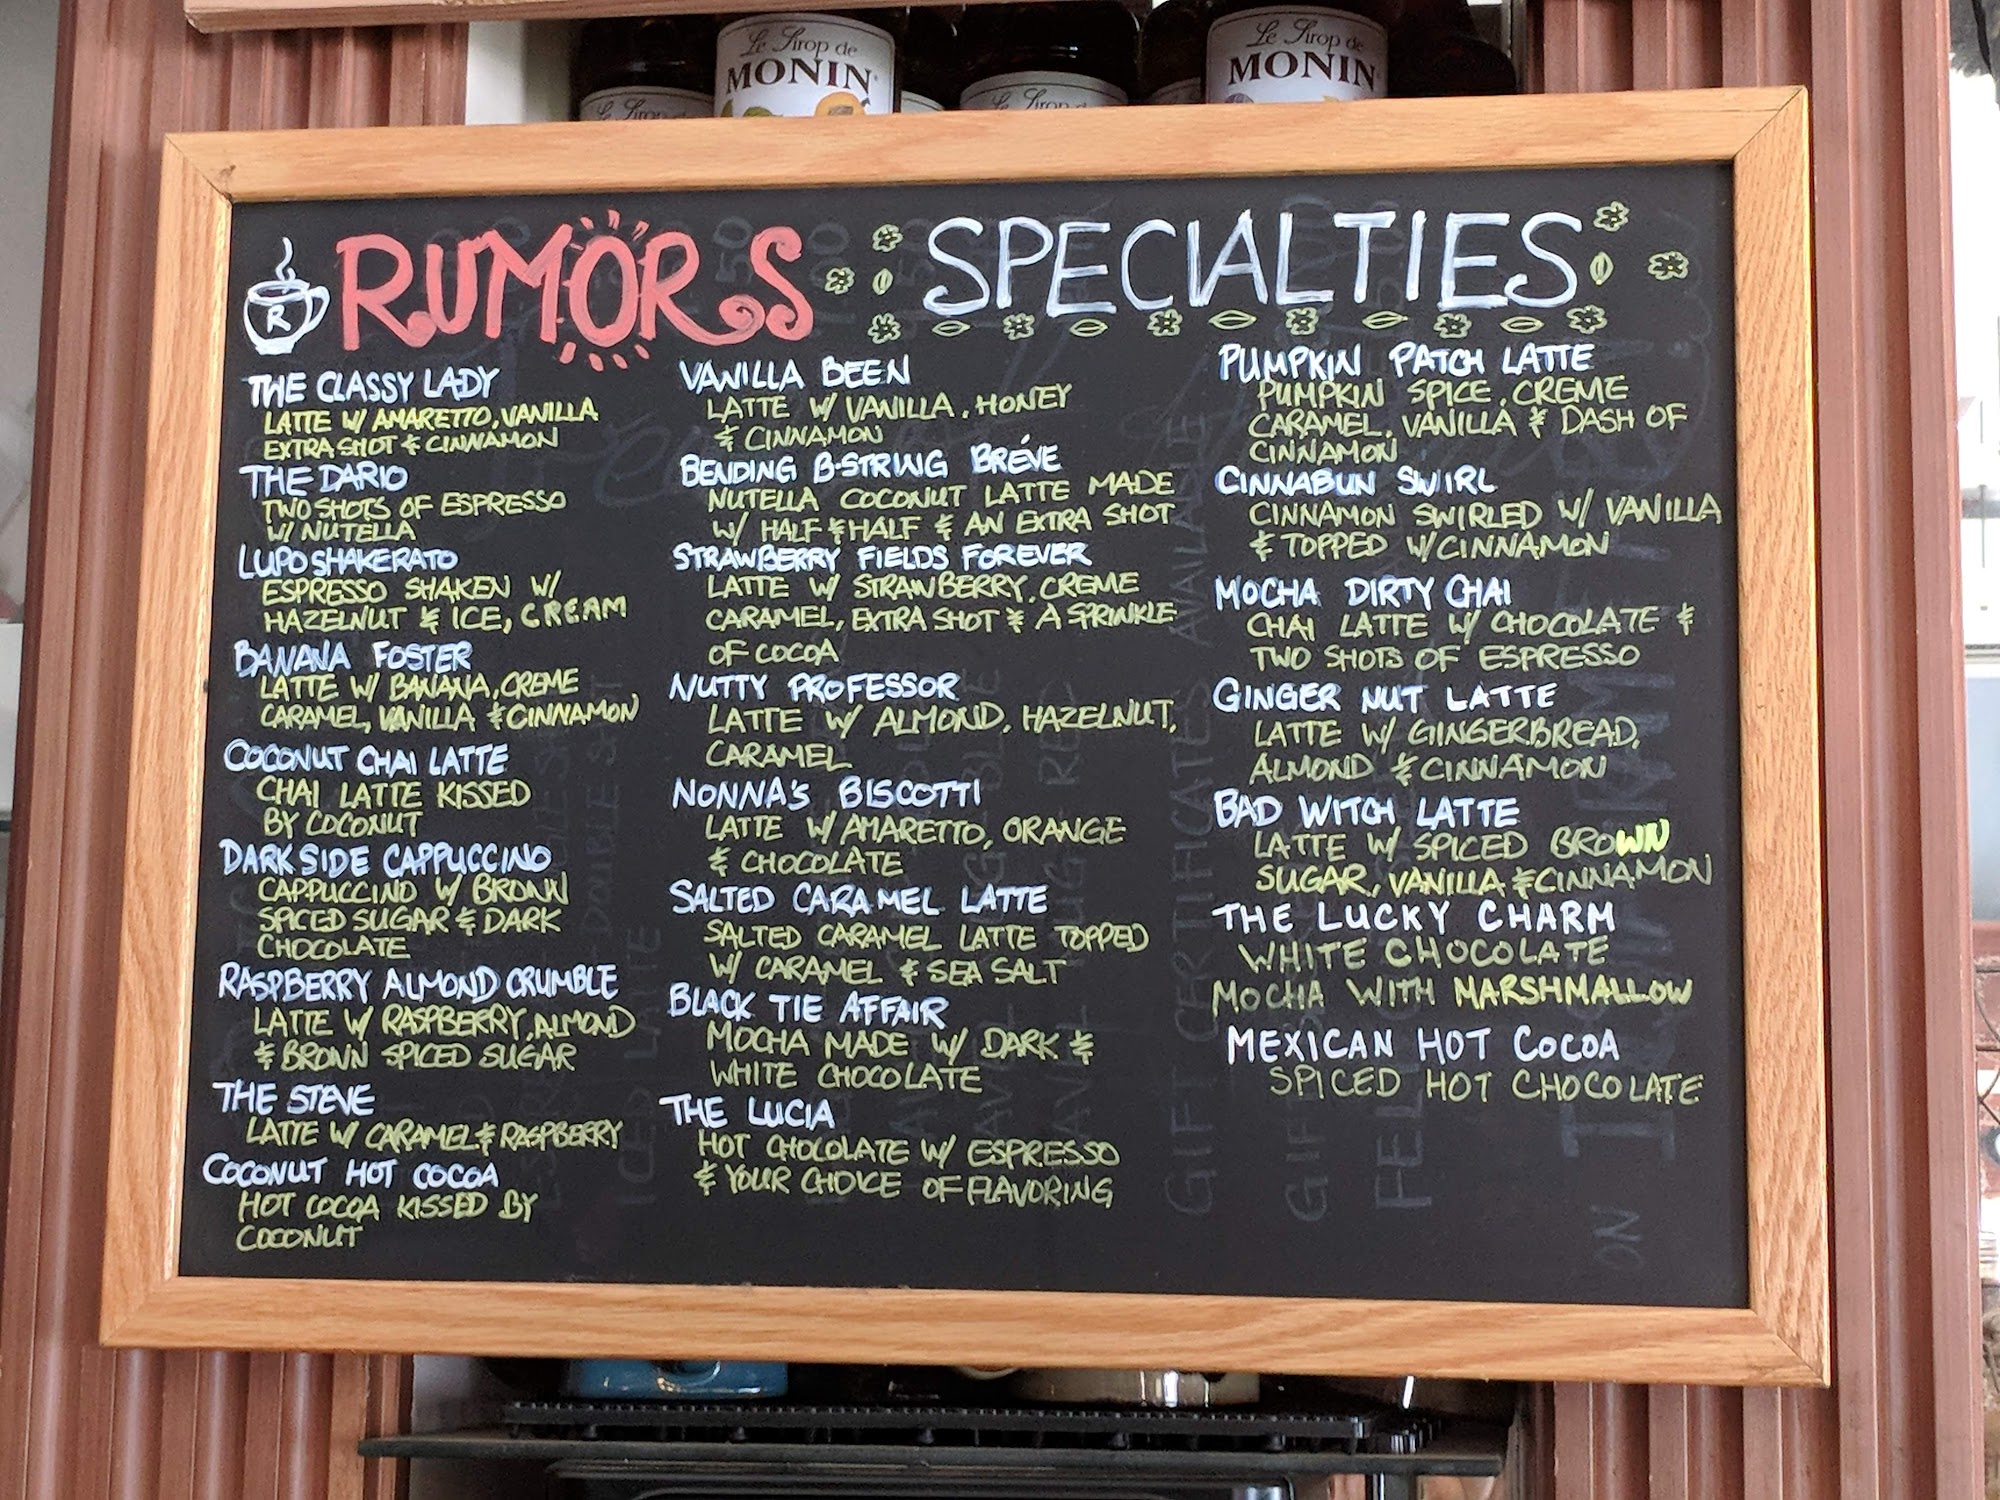 Le Sirop de
MONIN
Le Sirop de
Le Sirop de
MONIN
Le Sirop de
R
RUMORS
SPECIALTIES
THE CLASSY LADY
LATTE W/ AMARETTO, VANILLA
EXTRA SHOT & CINNAMON
THE DARIO
TWO SHOTS OF ESPRESSO
W/ NUTELLA
LUPO SHAKERATO
ESPRESSO SHAKEN W/
HAZELNUT & ICE, CREAM
BANANA FOSTER
LATTE W/ BANANA, CREME
CARAMEL, VANILLA & CINNAMON
COCONUT CHAI LATTE
CHAI LATTE KISSED
BY COCONUT
DARK SIDE CAPPUCCINO
CAPPUCCINO W/ BROWN
SPICED SUGAR & DARK
CHOCOLATE
RASPBERRY ALMOND CRUMBLE
LATTE W/ RASPBERRY, ALMOND
& BROWN SPICED SUGAR
THE STEVE
LATTE W/ CARAMEL & RASPBERRY
COCONUT HOT COCOA
HOT COCOA KISSED BY
COCONUT
VANILLA BEEN
LATTE W/ VANILLA, HONEY
& CINNAMON
BENDING B-STRING BRÉVE
NUTELLA COCONUT LATTE MADE
W/ HALF & HALF & AN EXTRA SHOT
STRAWBERRY FIELDS FOREVER
LATTE W/ STRAWBERRY, CREME
CARAMEL, EXTRA SHOT & A SPRINKLE
OF COCOA
NUTTY PROFESSOR
LATTE W/ ALMOND, HAZELNUT,
CARAMEL
NONNA'S BISCOTTI
LATTE W/ AMARETTO, ORANGE
& CHOCOLATE
SALTED CARAMEL LATTE
SALTED CARAMEL LATTE TOPPED
W/ CARAMEL & SEA SALT
BLACK TIE AFFAIR
MOCHA MADE W/ DARK &
WHITE CHOCOLATE
THE LUCIA
HOT CHOCOLATE W/ ESPRESSO
& YOUR CHOICE OF FLAVORING
PUMPKIN PATCH LATTE
PUMPKIN SPICE, CREME
CARAMEL, VANILLA & DASH OF
CINNAMON
CINNABUN SWIRL
CINNAMON SWIRLED W/ VANILLA
& TOPPED W/ CINNAMON
MOCHA DIRTY CHAI
CHAI LATTE W/ CHOCOLATE &
TWO SHOTS OF ESPRESSO
GINGER NUT LATTE
LATTE W/ GINGERBREAD,
ALMOND & CINNAMON
BAD WITCH LATTE
LATTE W/ SPICED BROWN
SUGAR, VANILLA & CINNAMON
THE LUCKY CHARM
WHITE CHOCOLATE
MOCHA WITH MARSHMALLOW
MEXICAN HOT COCOA
SPICED HOT CHOCOLATE
GIFT CERTIFICATES AVAILABLE
ICED LATTE